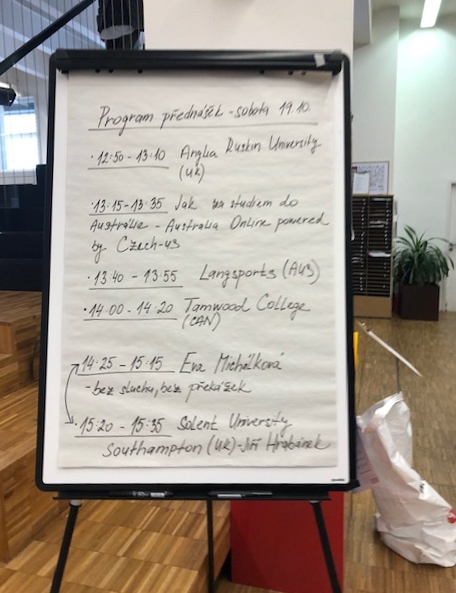 Program přednášek - sobota 19.10.
· 12:50 - 13:10 Anglia Ruskin University
(UK)
13:15 - 13:35 Jak za studiem do
Austrálie - Australia Online powered
by Czech-us
· 13:40 - 13:55 Langsports (AUS)
· 14:00 - 14:20 Tamwood College
(CAN)
14:25 - 15:15 Eva Michálková
- bez sluchu, bez překážek
· 15:20 - 15:35 Solent University
Southampton (UK) - Jiří Hrabánek